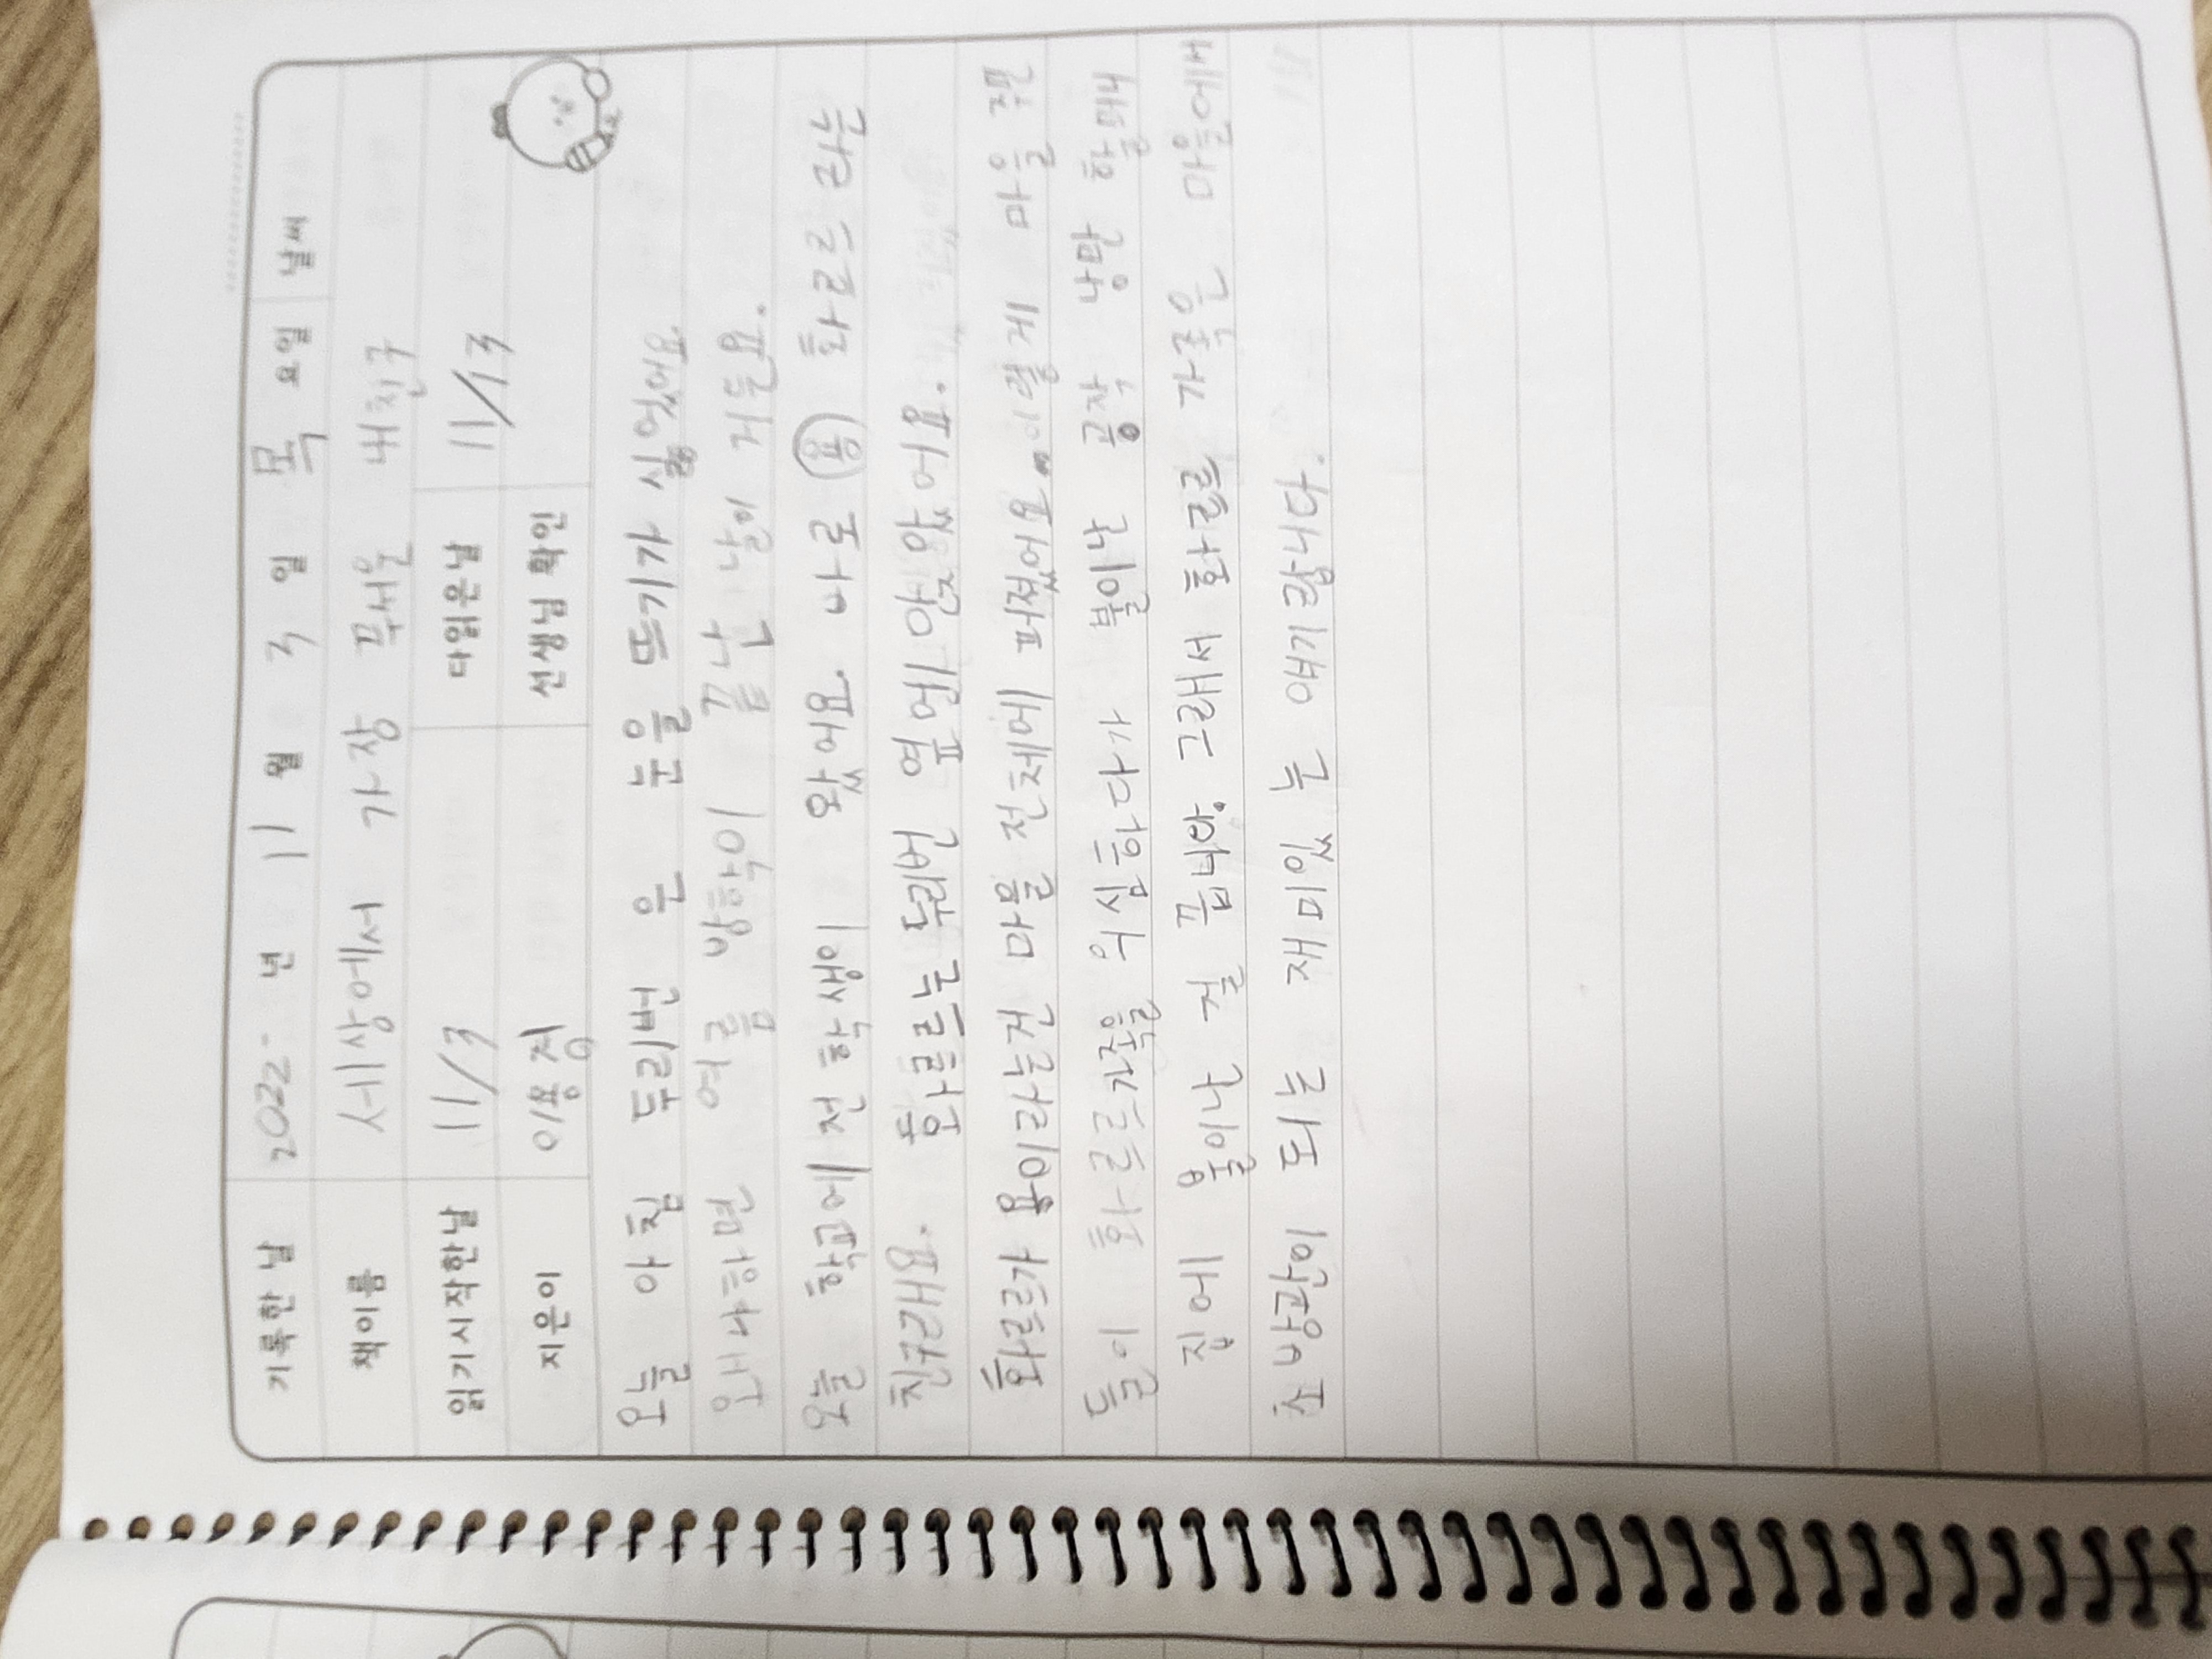 기록한 날 2022 년 11 월 3 일 목 요일 날씨
책이름 세상에서 가장 무서운 내친구
읽기시작한날 11/3 다읽은날 11/13
지은이 이용정 선생님 확인
오늘 아침 두리번 은 눈을 뜨기가 싫었어요.
왜냐하면 여름 방학이 끝난 날이 거든요.
오늘 학교에 전학생이 왔어요. 바로 용 화르르 라는
친구래요. 화르르는 두리번 옆에 앉았어요.
화르르가 용이라는건 마을 전체에 퍼졌어요 이렇게 마을 주민
들이 화르르가족을 의심하다가 불이난 공작 낭만 할머니
집에 불이난 걸 끕니다. 그래서 화르르 가족은 마을에서
소방관이 되는 재미있는 얘기랍니다.